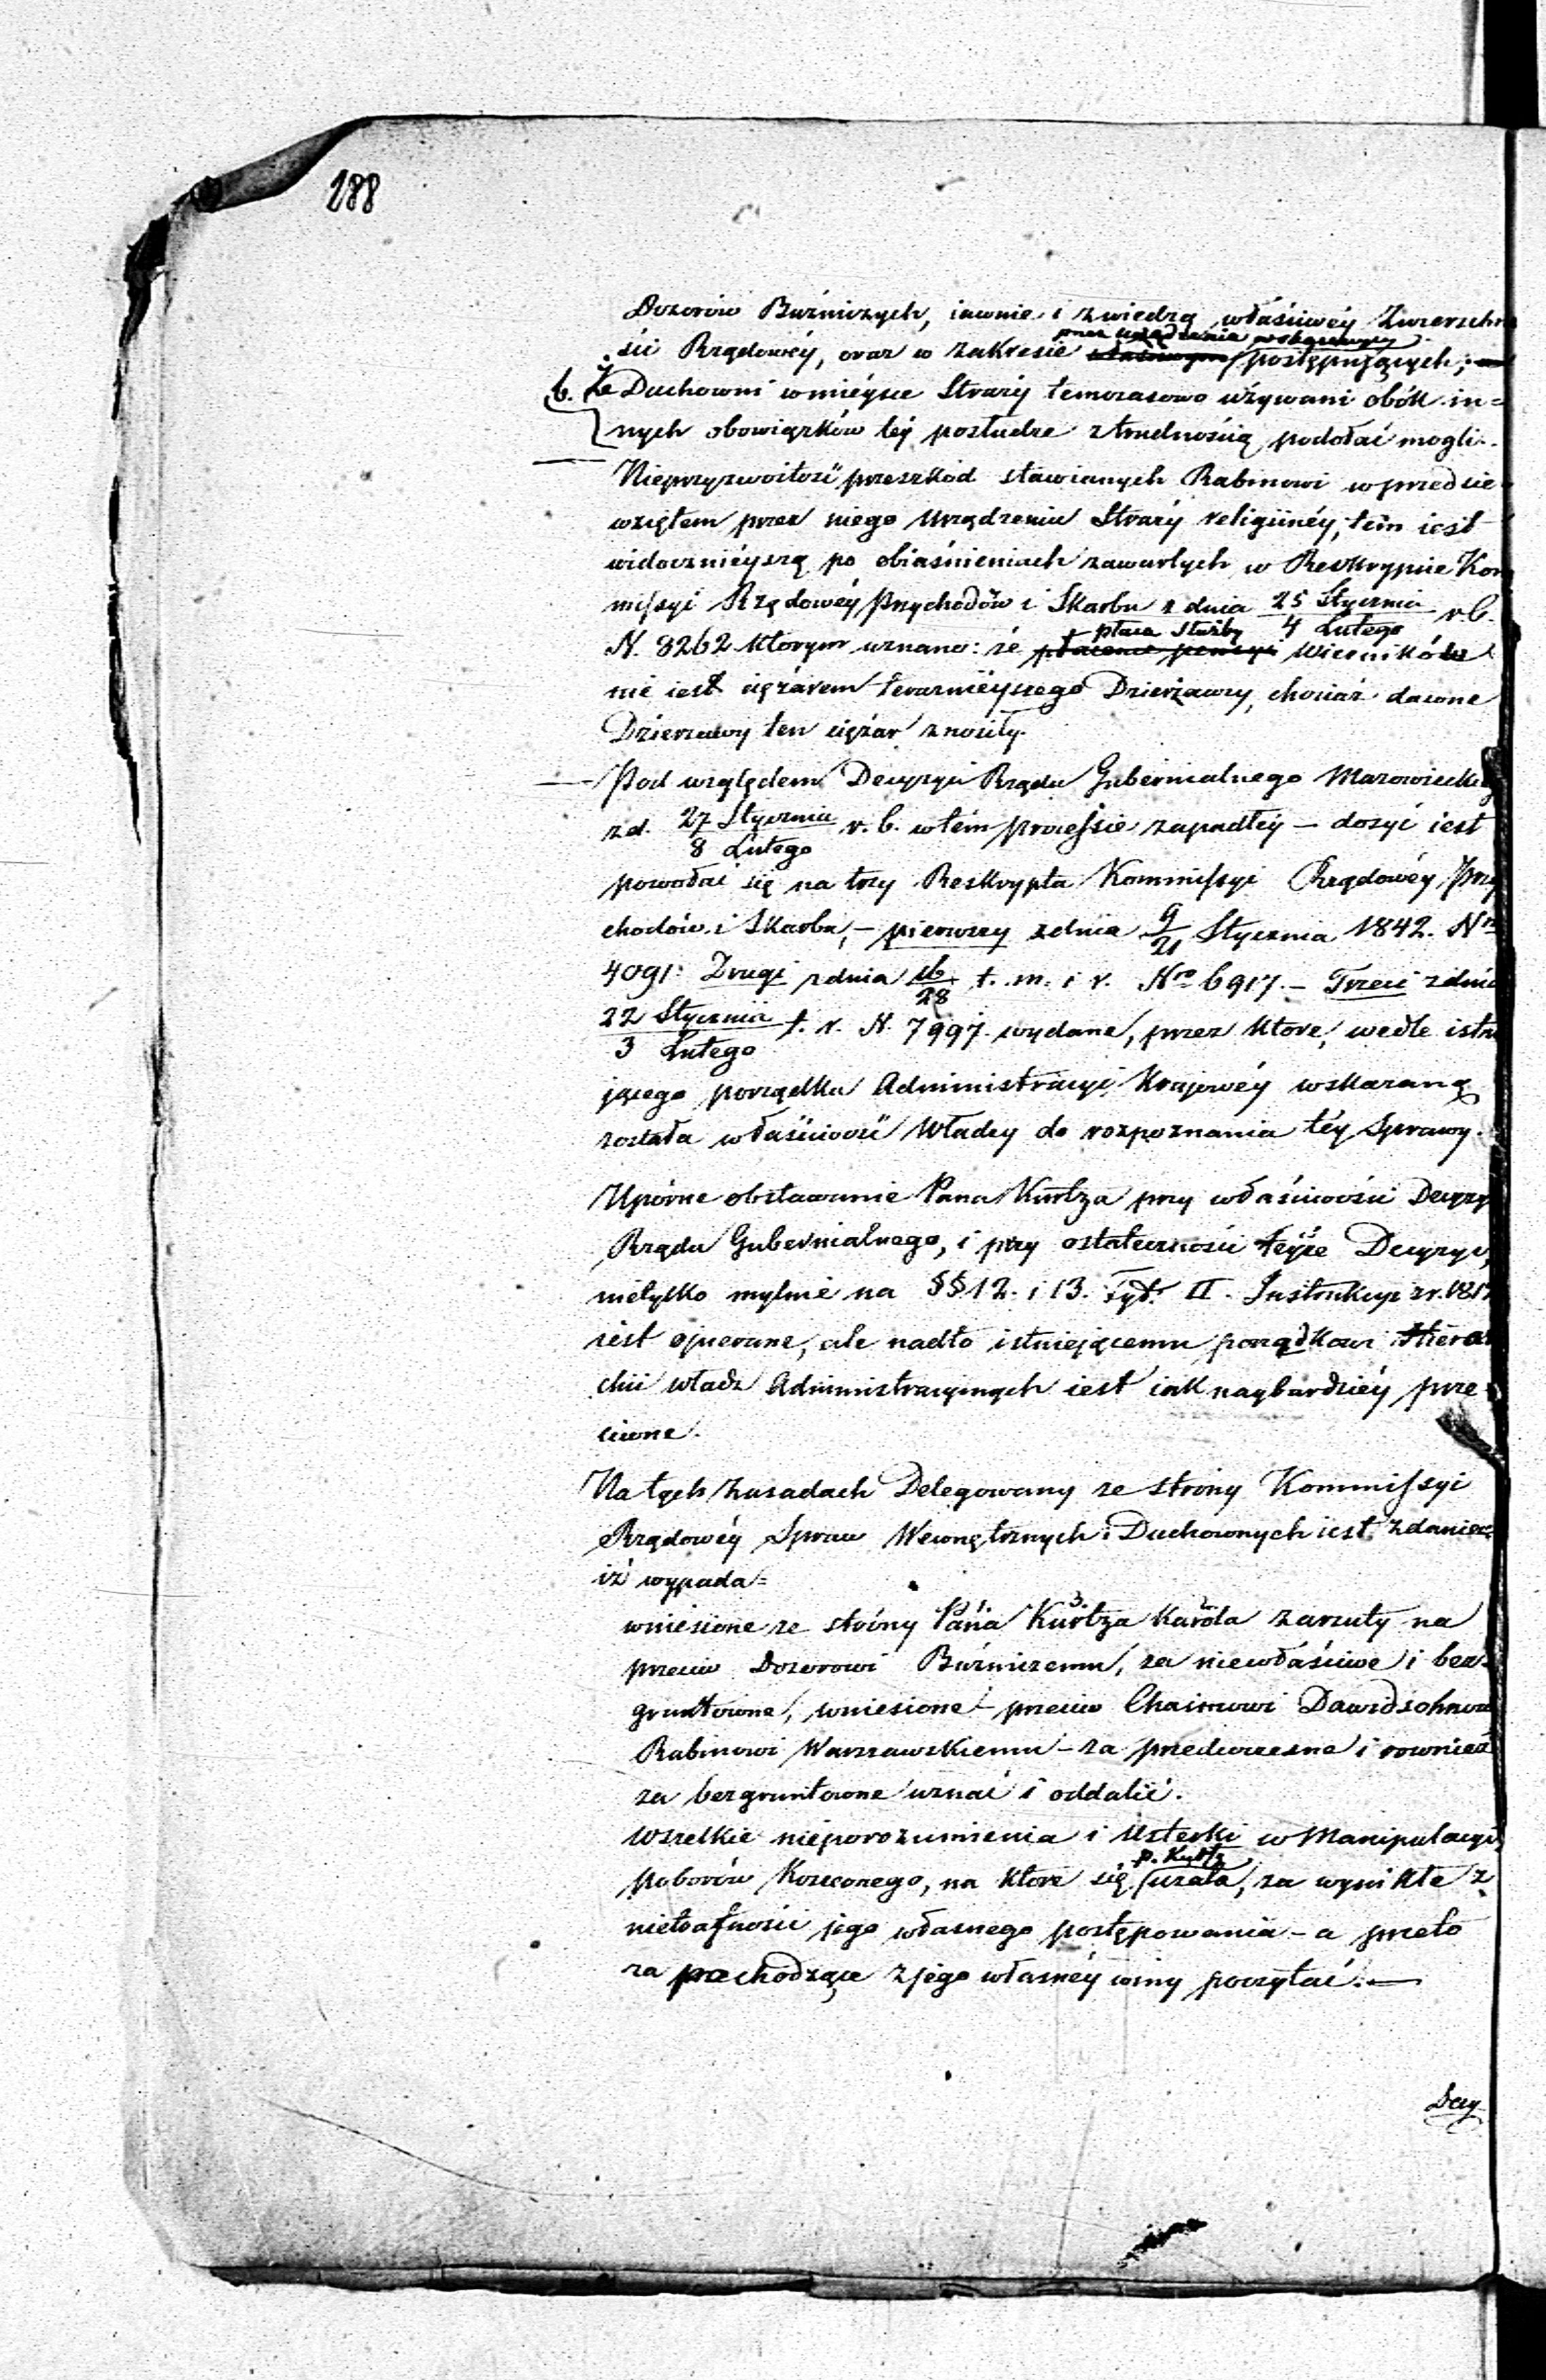 188
Dozorów Bużniczych, iawnie i z wiedzą właściwéy Zwierzchno
przez urządzenia wskazanym
ści Rządowéy, oraz w zakresie postępujących;
b. Że Duchowni w mieysce Straży temczasowo używani obók in=
nych obowiązków téy posłudze z trudnością podołać mogli.
Nieprzyzwoitość przeszkód stawianych Rabinowi w przedsie
wziętem przez niego urządzeniu Straży religiinéy, tém iest
widocznieyszą po obiaśnieniach zawartych w Reskrypcie Kom
missyi Rządowéy Przychodów i Skarbu z dnia 25 Stycznia / 4 Lutego r.b.
płaca Służby
N. 8262 którym uznano: że płacenie pensyi Wierników
nie iest ciężarem teraznieyszego Dzierżawcy, chociaż dawne
Dzierżawy ten ciężar znosiły.
Pod względem Decyzyi Rządu Gubernialnego Mazowieckieg
z d. 27 Stycznia / 8 Lutego r.b. w tém processie zapadłéy — dosyć iest
powołać się na trzy Reskrypta Kommissyi Rządowéy Przy
chodów i Skarbu, — pierwszy z dnia 9/21 Stycznia 1842. Nro
4091: Drugi z dnia 16/28 t. m. i r. Nro 6917. — Trzeci z dnia
22 Stycznia / 3 Lutego t. r. N. 7997. wydane, przez które, wedle istn
jącego porządku Administracyi Krajowéy wskazaną
została właściwość Władzy do rozpoznania téy Sprawy.
Upórne obstawanie Pana Kurtza przy właściwości Decyzy
Rządu Gubernialnego, i przy ostateczności téyże Decyzyi,
nietylko mylnie na §§ 12. i 13. Tyt. II. Instrukcyi z r. 181
iest opierane, ale nadto istniejącemu porządkowi Hierar
chii władz Administracyinych iest iak naybardziéy prze
ciwne.
Na tych zasadach Delegowany ze strony Kommissyi
Rządowéy Spraw Wewnętrznych i Duchownych iest zdaniem
iż wypada=
1. 3. 2.
wniesione ze strony Pana Kurtza Karóla zarzuty na
przeciw Dozorowi Bużniczemu, za niewłaściwe i bez
gruntowne, wniesione — przeciw Chaimowi Dawidsohnow
Rabinowi Warszawskiemu — za przedwczesne i rownież
za bezgruntowne uznać i oddalić.
Wszelkie nieporozumienia i Usterki w Manipulacyi
p. Kurtz
poborów Koszernego, na które się użala, za wynikłe z
nietrafności jego własnego postępowania — a przeto
za pochodzące z jego własnéy winy poczytać. —
Decy